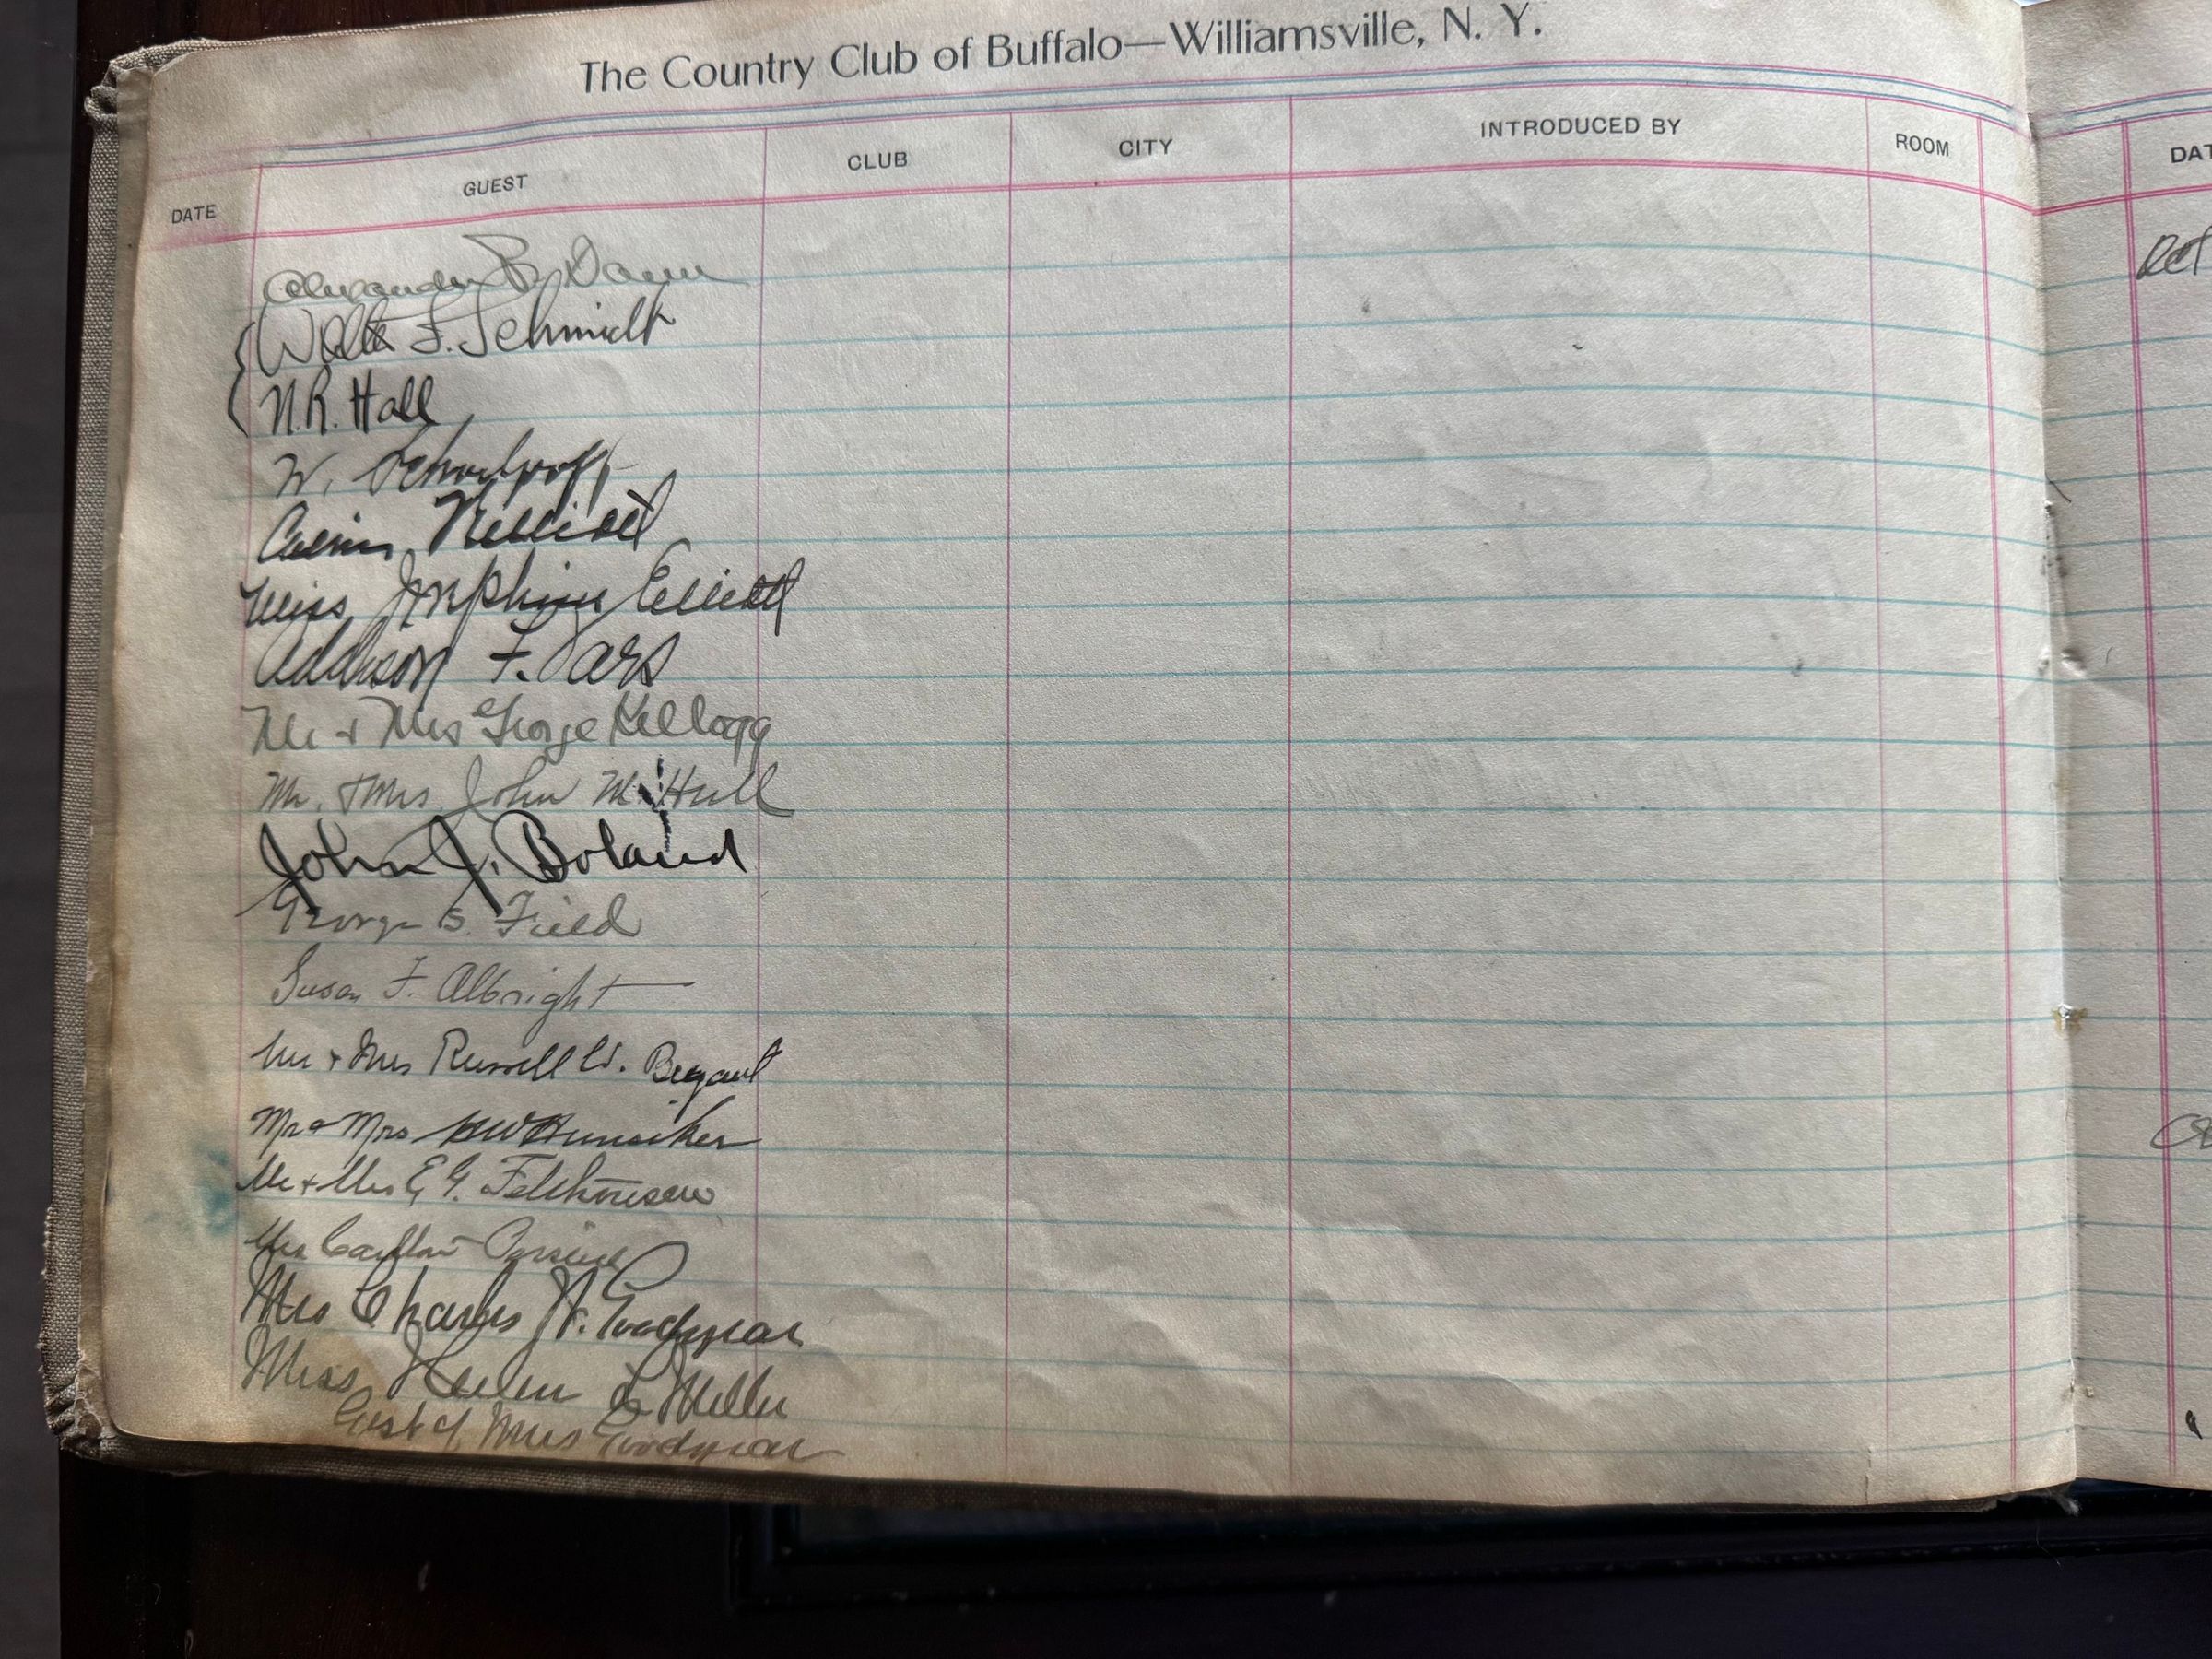 The Country Club of Buffalo—Williamsville, N. Y.
DATE GUEST CLUB CITY INTRODUCED BY ROOM
Alexander
Walter F. Schmidt
N.R. Hall
W. Schoellkopf
Miss Josephine Elliott
Addison F. Vars
Mr & Mrs George Kellogg
Mr. & Mrs John M. Hull
John J. Boland
George B. Field
Susan F. Albright
Mr & Mrs Russell W.
Mr & Mrs Hunsiker
Mr & Mrs E. G. Felthousen
Mrs
Mrs Charles W. Goodyear
Miss Helen Miller
Guest of Mrs Goodyear
DAT
Oct